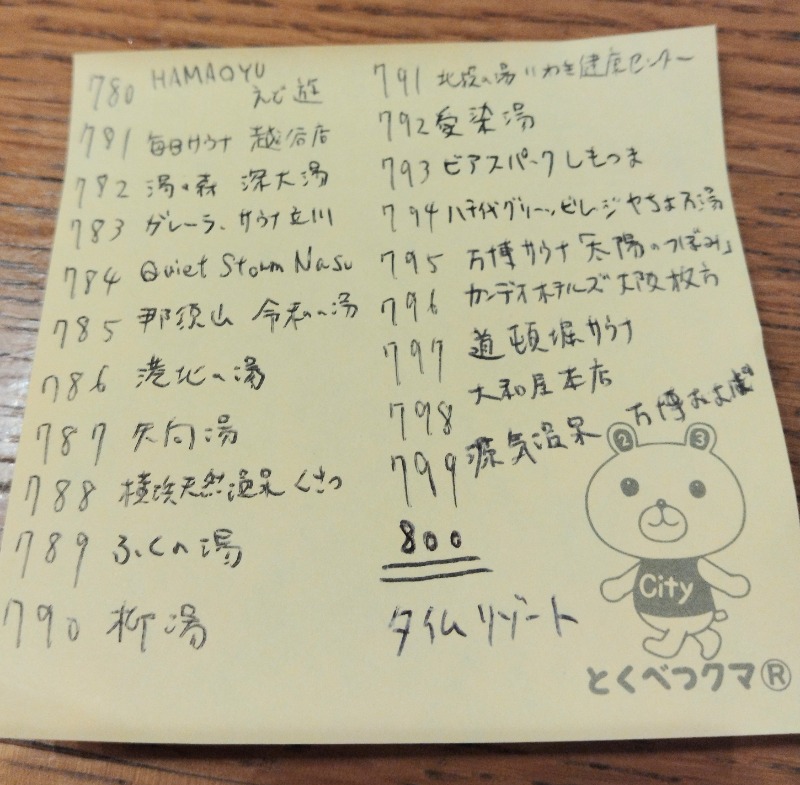 780 HAMAQYU
えど遊
781 毎日サウナ 越谷店
782 湯の森 深大湯
783 ゲレーラ、サウナ立川
784 Quiet Storm Nasu
785 那須山 令和の湯
786 港北の湯
787 矢向湯
788 横浜天然温泉くさつ
789 ふくの湯
790 柳湯
791 北投の湯 いわき健康センター
792 愛染湯
793 ビアスパークしもつま
794 八千代グリーンビレッジ やちよ乃湯
795 万博サウナ「太陽のつぼみ」
796 カンデオホテルズ大阪枚方
797 道頓堀サウナ
798 大和屋本店
799 源気温泉 万博おゆば
800
タイムリゾート
2 3
City
とくべつクマ®